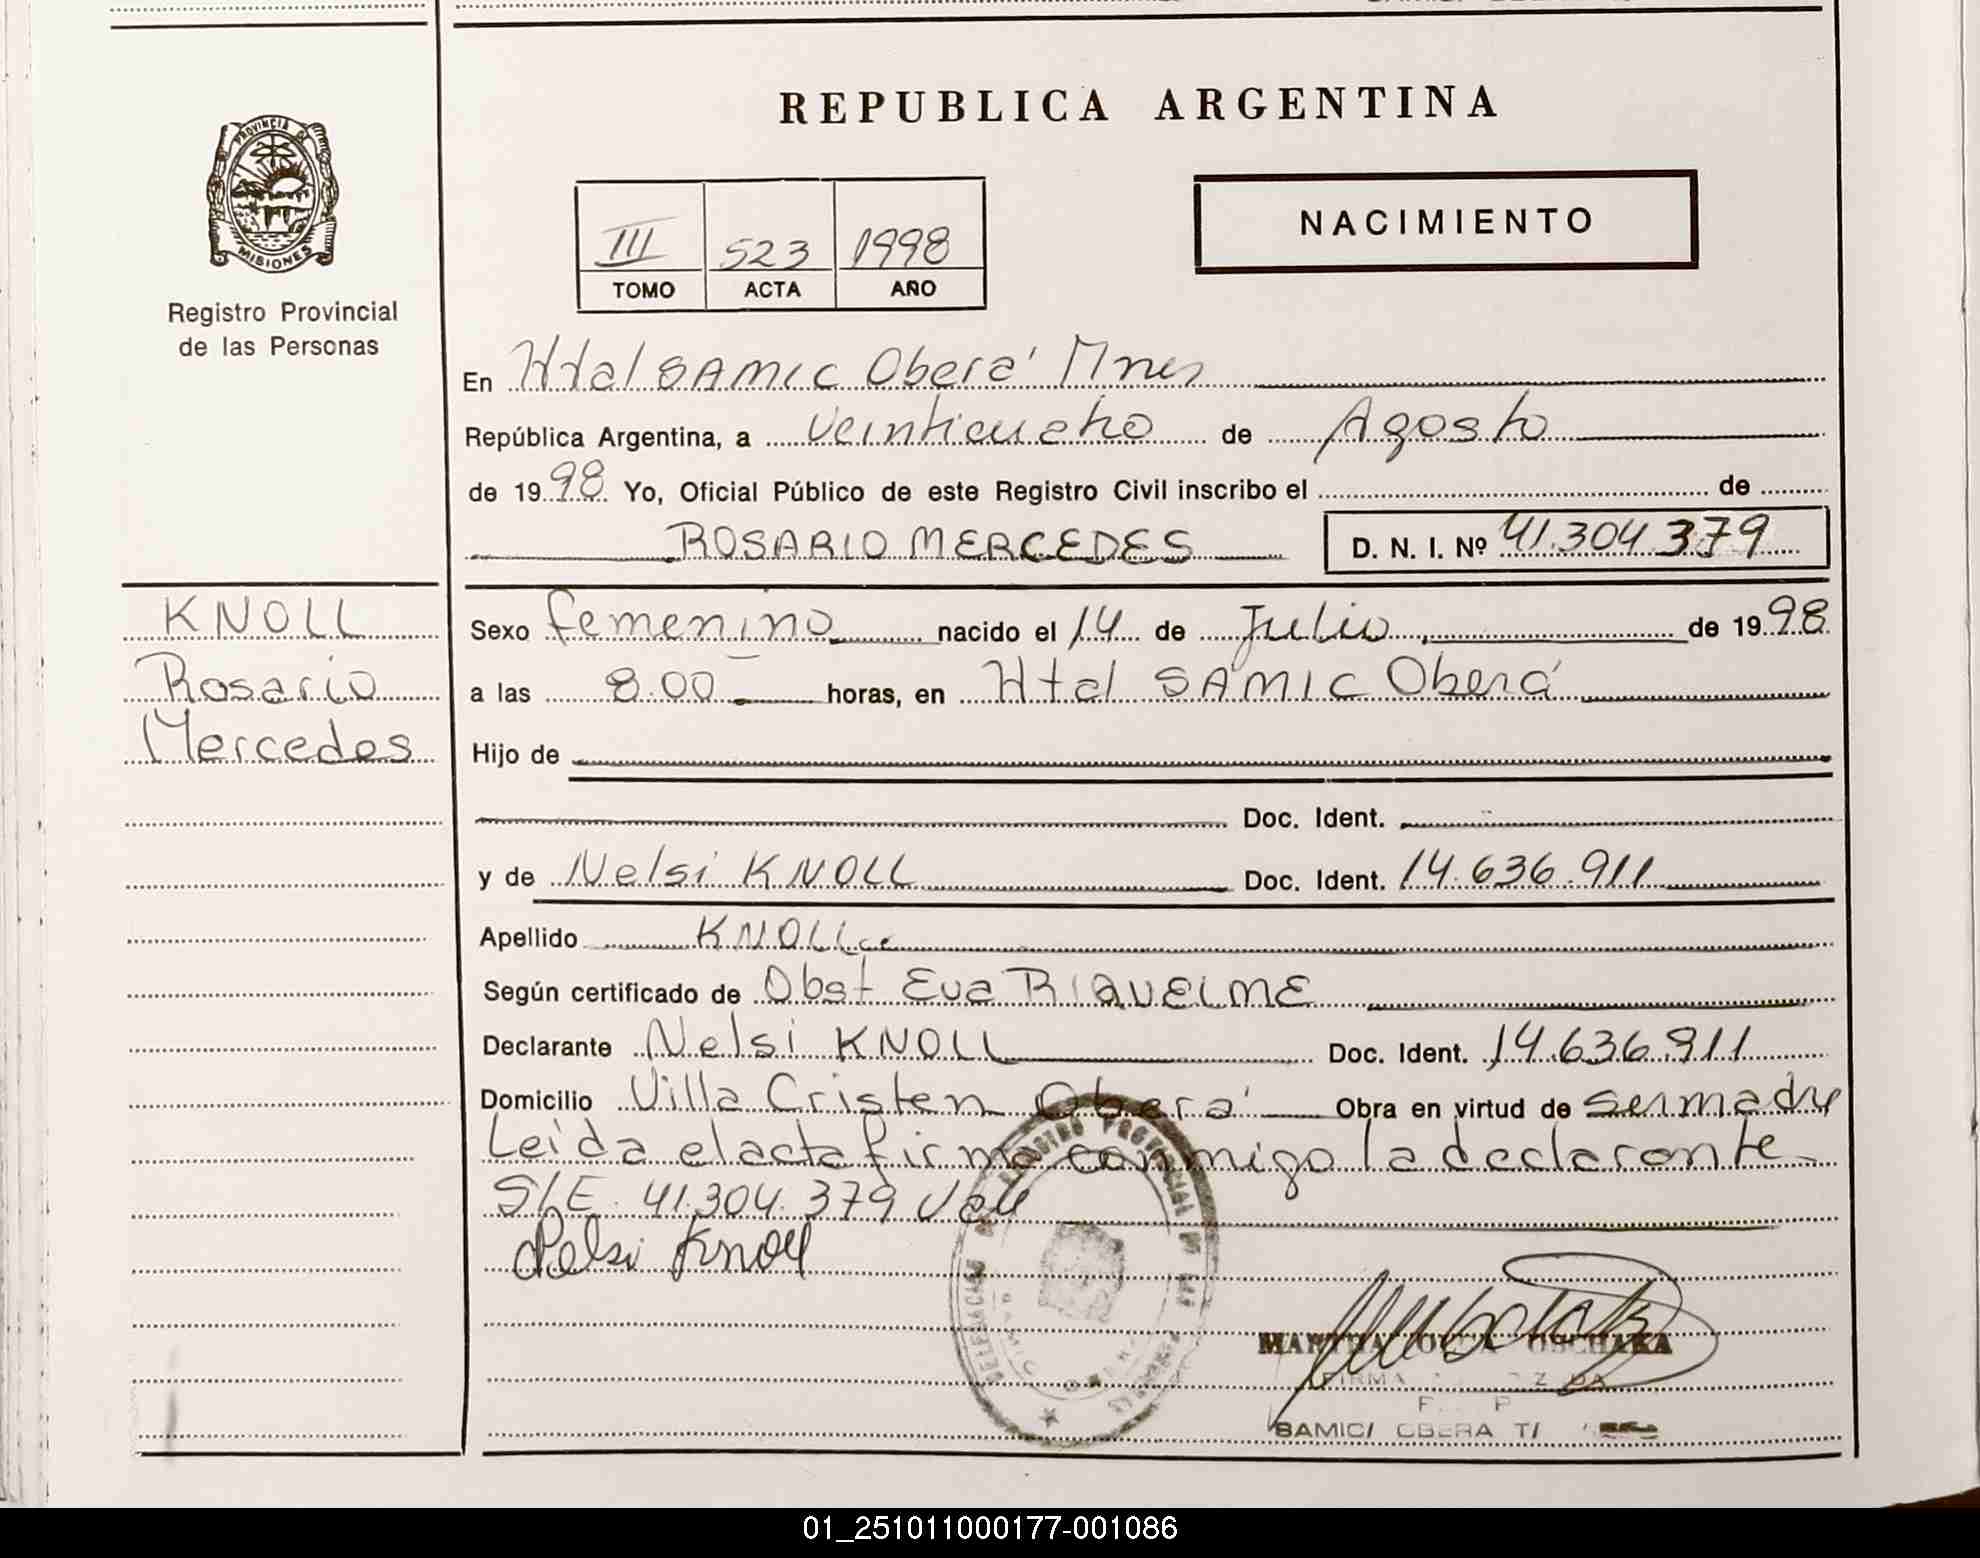 REPUBLICA ARGENTINA
PROVINCIA D
MISIONES
Registro Provincial
de las Personas
III 523 1998
TOMO ACTA AÑO
NACIMIENTO
En Htal SAMIC Oberá Mnes
República Argentina, a veinticuatro de Agosto
de 1998 Yo, Oficial Público de este Registro Civil inscribo el de
ROSARIO MERCEDES D. N. I. Nº 41.304.379
KNOLL
Rosario
Mercedes
Sexo femenino nacido el 14 de Julio de 1998
a las 8.00 horas, en Htal SAMIC Oberá
Hijo de
Doc. Ident.
y de Nelsi KNOLL Doc. Ident. 14.636.911
Apellido KNOLL
Según certificado de Obst Eva RIQUELME
Declarante Nelsi KNOLL Doc. Ident. 14.636.911
Domicilio Villa Cristen Oberá Obra en virtud de ser madre
Leida el acta firma conmigo la declarante
S/E. 41.304.379 Vale
Nelsi Knoll
MARTHA OLGA OSCHAKA
FIRMA
SAMIC/ OBERA
01_251011000177-001086